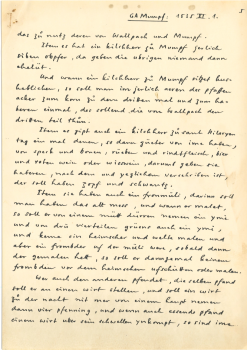 GA Mumpf: 1535 XI. 1.
5
das zu nutz deren von Wallpach und Mumpf.
Item es hat ein kilchherr zu Mumpf jerlich
siben opfer, da geben die übrigen niemand dann
ehelüt.
Und wann ein kilchherr zu Mumpf sitzet hus-
heblichen, so soll man im jerlich seren der pfaffen
acker zum korn zu dem dritten mal und zum ha-
beren einmal, das sollend die von Wallpach den
dritten teil thun.
Item es gipt auch ein kilchherr zu sant Kilasgen
tag ein mal denen, so dann güeter von ime haben,
von speck und bonen, rüeben und rindfleisch, bier
und roten wein oder wisswein, darauf geben sie
haberen, nach dem und yeglichen verschriben ist,
der soll haben zopf und schwantz.
Item sie haben auch ein frommüli, darinn soll
man haben das alt mess, und wann er malet,
so soll er von einem mütt dürren nemen ein ymi
und von drü werteilen grünes auch ein ymi,
und kann ein heimscher und welte malen und
aber ein frömbder uf der müli were, sobald dann
der gemalen hett, so soll er damezemal keinem
frömbden vor dem heimschen ufschieben oder malen.
Wer auch den anderen pfendet, die selben pfand
soll er an einen wirt stellen, und soll ein wirt
zu der nacht nit mer von einem haupt nemen
dann vier pfenning, und wenn auch essends pfand
einem wirt uber sein schwellen ynkompt, so sind ime